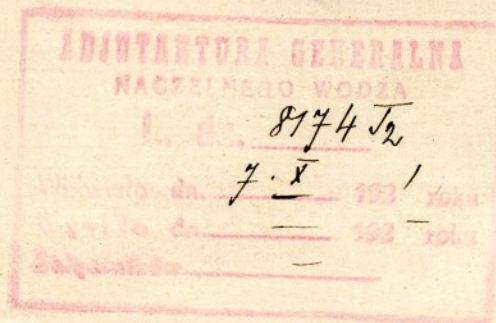 ADJUTANTURA GENERALNA
NACZELNEGO WODZA
L. dz. 8174
7. X 192 1 roku
dn. 192 roku
Załączników